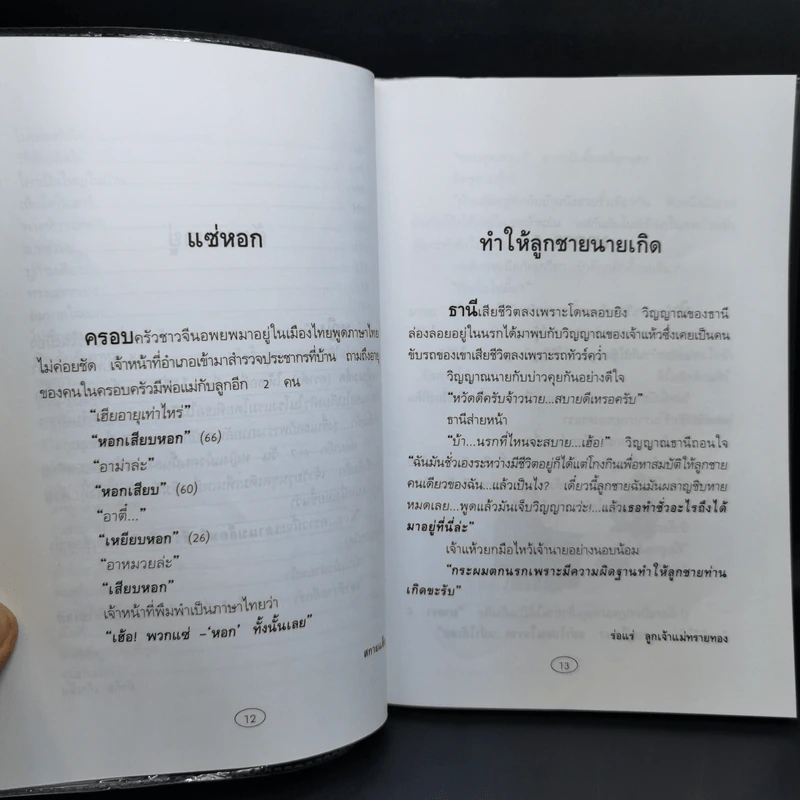 แซ่หอก
ครอบครัวชาวจีนอพยพมาอยู่ในเมืองไทยพูดภาษาไทย
ไม่ค่อยชัด เจ้าหน้าที่อำเภอเข้ามาสำรวจประชากรที่บ้าน ถามถึงอายุ
ของคนในครอบครัวมีพ่อแม่กับลูกอีก 2 คน
“เฮียอายุเท่าไหร่”
“หอกเสียบหอก” (66)
“อาม่าล่ะ”
“หอกเสียบ” (60)
“อาตี๋...”
“เหยียบหอก” (26)
“อาหมวยล่ะ”
“เสียบหอก”
เจ้าหน้าที่พึมพำเป็นภาษาไทยว่า
“เฮ้อ! พวกแซ่ –‘หอก’ ทั้งนั้นเลย”
12
ทำให้ลูกชายนายเกิด
ธานีเสียชีวิตลงเพราะโดนลอบยิง วิญญาณของธานี
ล่องลอยอยู่ในนรกได้มาพบกับวิญญาณของเจ้าแห้วซึ่งเคยเป็นคน
ขับรถของเขาเสียชีวิตลงเพราะรถทัวร์คว่ำ
วิญญาณนายกับบ่าวคุยกันอย่างดีใจ
“หวัดดีครับจ้าวนาย...สบายดีเหรอครับ”
ธานีส่ายหน้า
“บ้า...นรกที่ไหนจะสบาย...เฮ้อ!” วิญญาณธานีถอนใจ
“ฉันมันชั่วเองระหว่างมีชีวิตอยู่ก็ได้แต่โกงกินเพื่อหาสมบัติให้ลูกชาย
คนเดียวของฉัน...แล้วเป็นไง? เดี๋ยวนี้ลูกชายฉันมันผลาญซิบหาย
หมดเลย...พูดแล้วมันเจ็บวิญญาณว่ะ!...แล้วเธอทำชั่วอะไรถึงได้
มาอยู่ที่นี่ล่ะ”
เจ้าแห้วยกมือไหว้เจ้านายอย่างนอบน้อม
“กระผมตกนรกเพราะมีความผิดฐานทำให้ลูกชายท่าน
เกิดขะรับ”
ร่อแร่ ลูกเจ้าแม่ทรายทอง
13